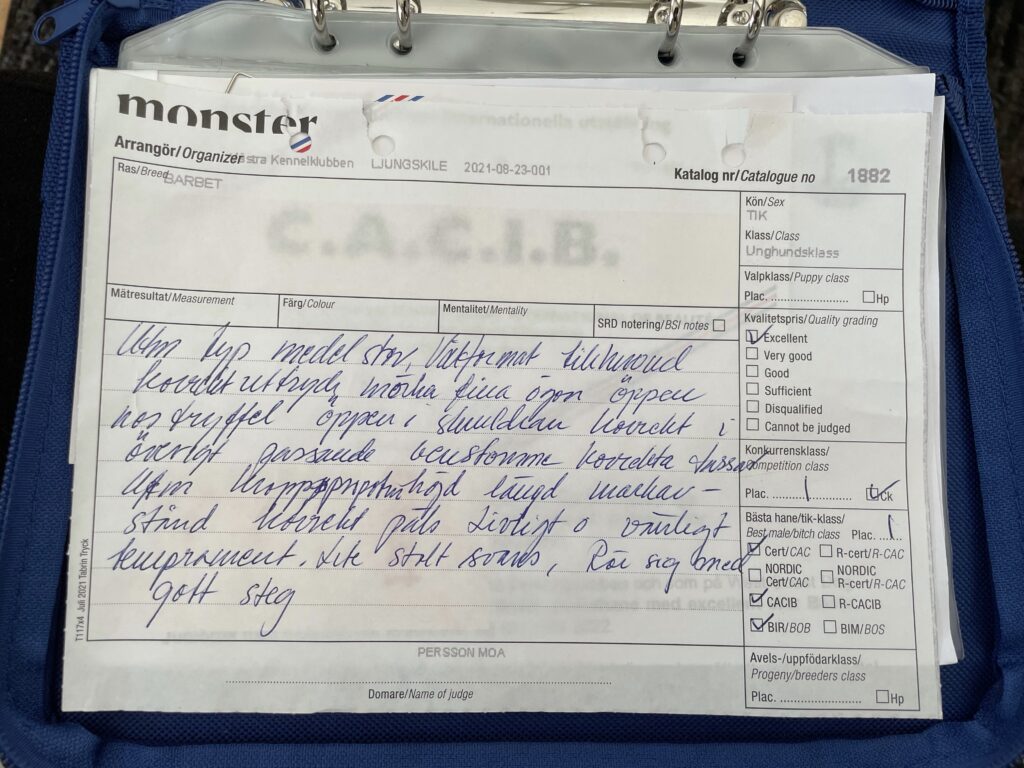 monster
Arrangör/Organizer
stra Kennelklubben LJUNGSKILE 2021-08-23-001
Katalog nr/Catalogue no 1882
Ras/Breed
BARBET
C.A.C.I.B.
Mätresultat/Measurement
Färg/Colour
Mentalitet/Mentality
SRD notering/BSI notes
Utm typ medel stor, tikhuvud
korrekt uttryck, mörka fina ögon öppen
nostryffel öppen i skuldran korrekt i
övrigt passande benstomme korrekta tassar
Utm längd mankav-
stånd korrekt päls livligt o vänligt
temprament. Lite stelt svans, Rör sig med
gott steg
PERSSON MOA
Domare/Name of judge
T117x4 Juli 2021 Tabrin Tryck
Kön/Sex
TIK
Klass/Class
Unghundsklass
Valpklass/Puppy class
Plac. Hp
Kvalitetspris/Quality grading
Excellent
Very good
Good
Sufficient
Disqualified
Cannot be judged
Konkurrensklass/
Competition class
Plac. 1 Ck
Bästa hane/tik-klass/
Best male/bitch class Plac. 1
Cert/CAC R-cert/R-CAC
NORDIC Cert/CAC NORDIC R-cert/R-CAC
CACIB R-CACIB
BIR/BOB BIM/BOS
Avels-/uppfödarklass/
Progeny/breeders class
Plac. Hp